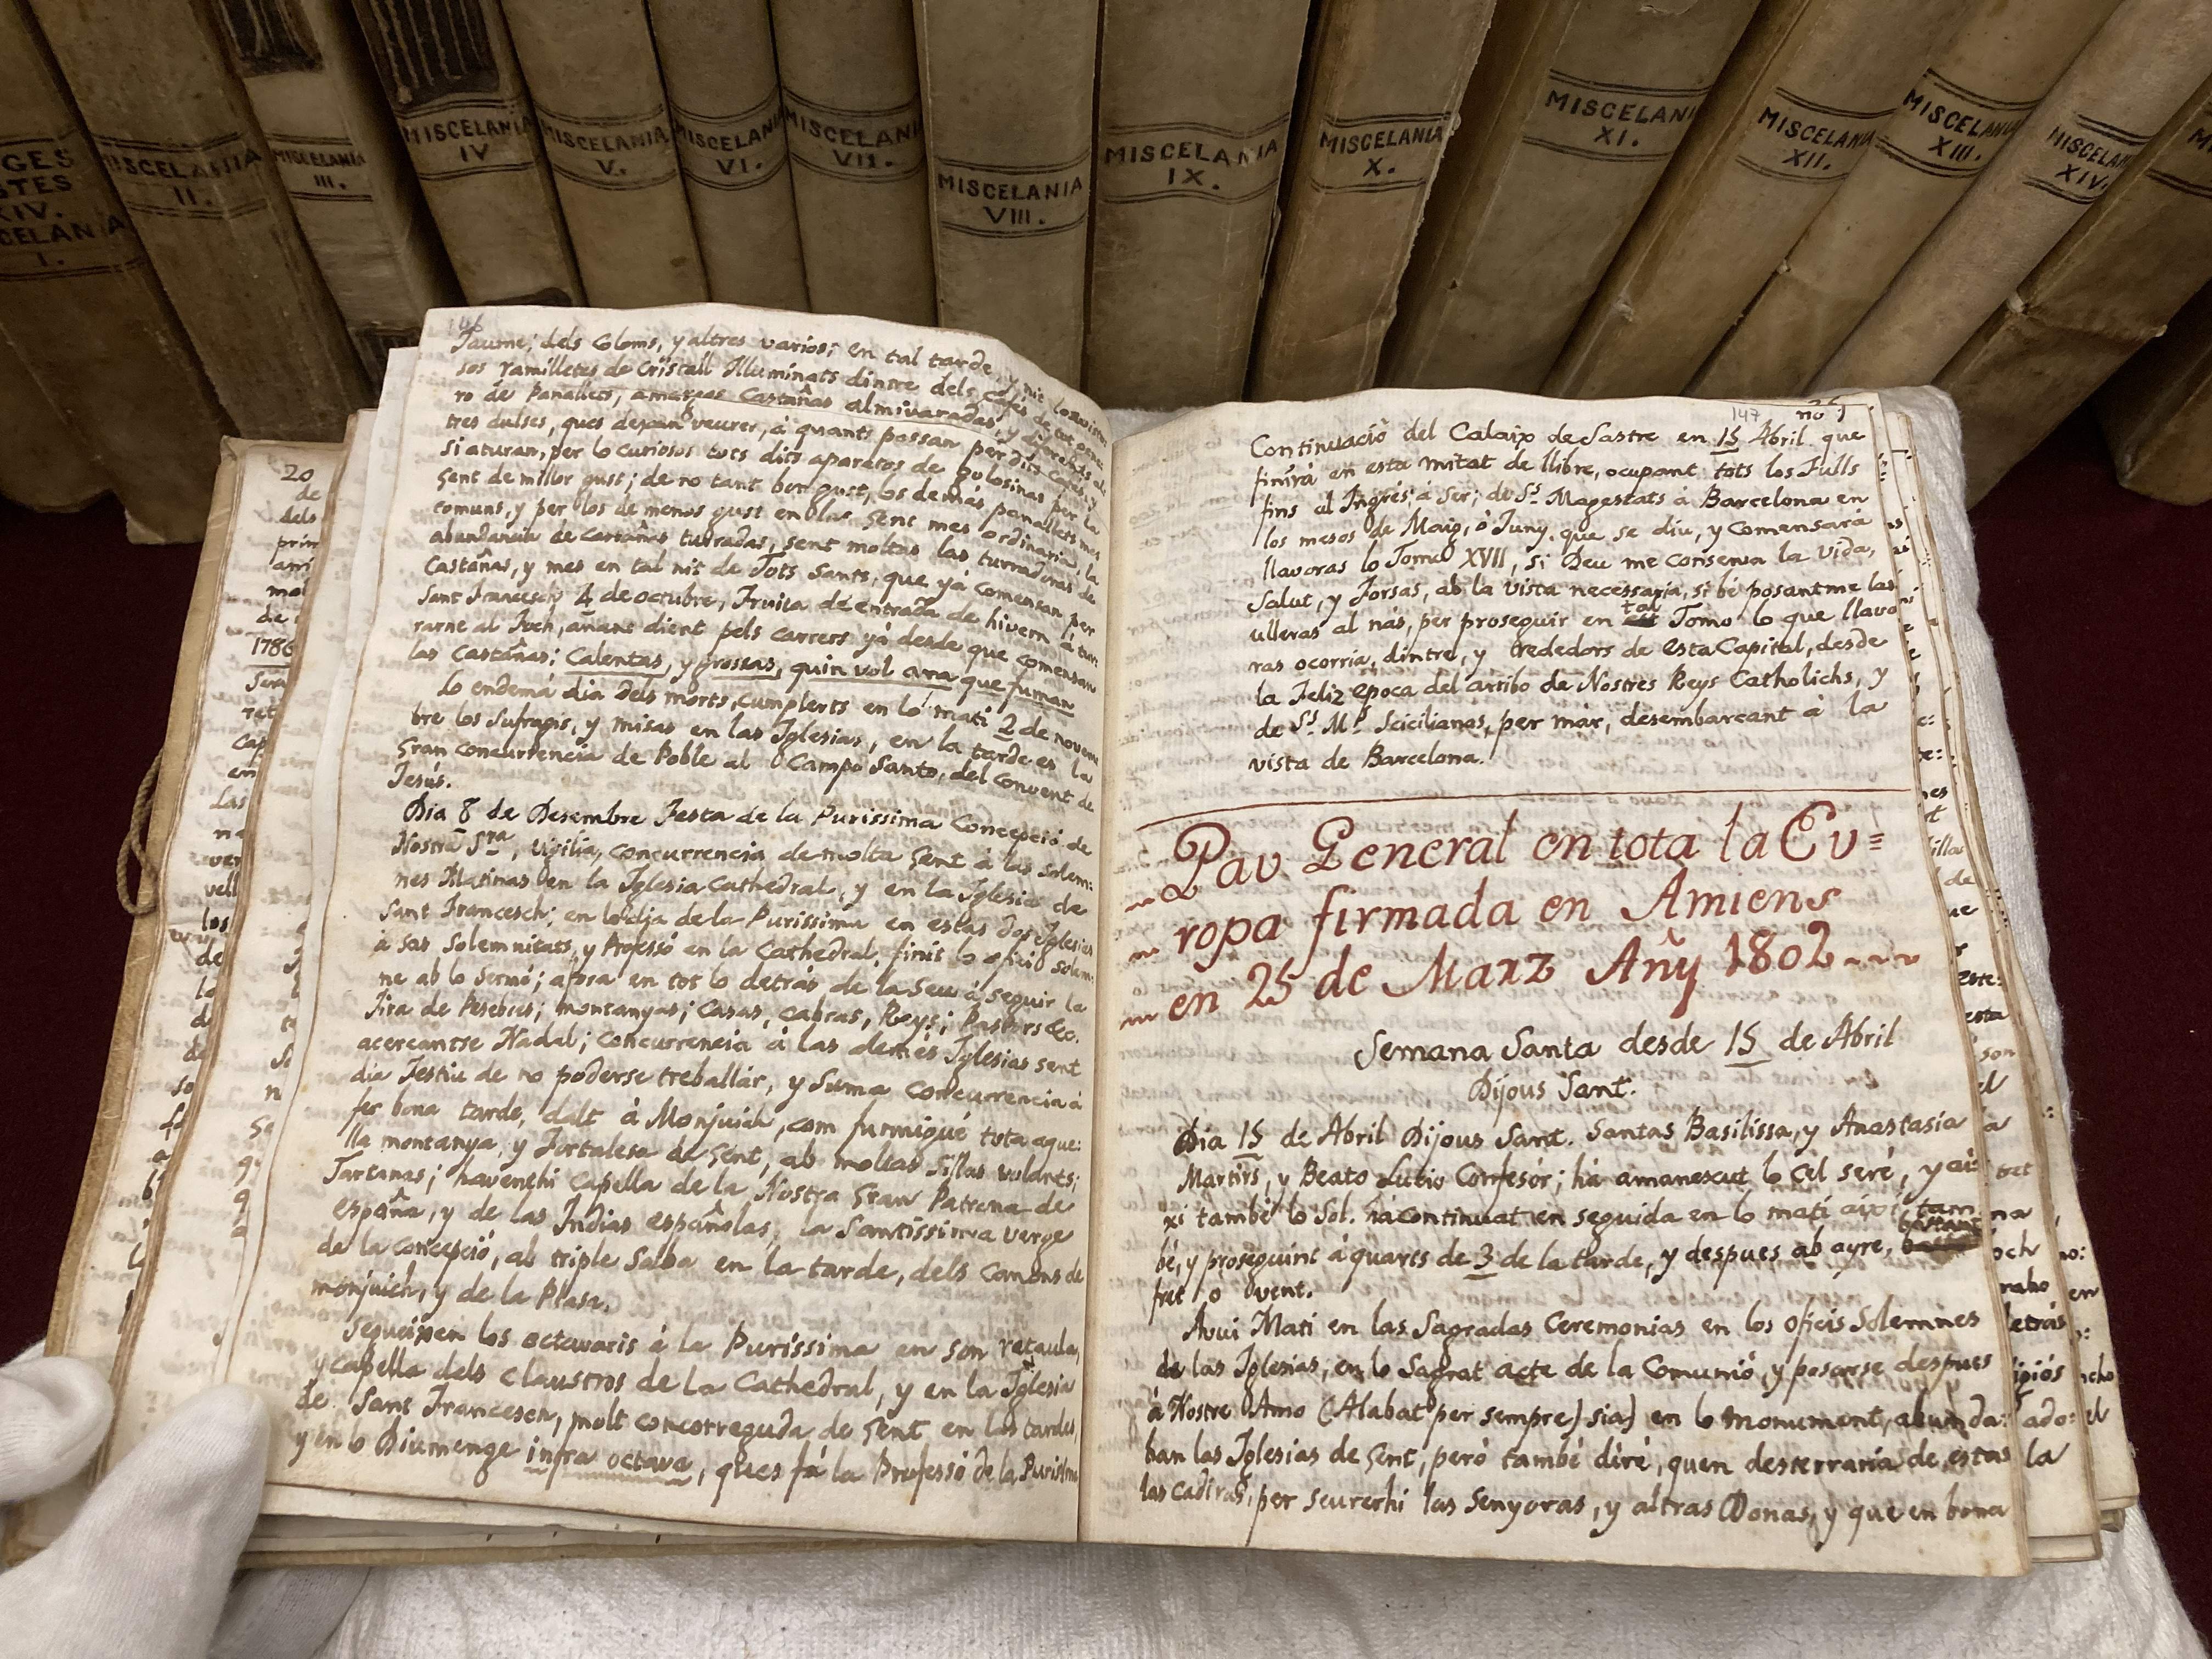 GES
STES
XIV.
CELANIA
I.
MISCELANIA
II.
MISCELANIA
III.
MISCELANIA
IV
MISCELANIA
V.
MISCELANIA
VI.
MISCELANI
VII.
MISCELANIA
VIII.
MISCELANIA
IX.
MISCELANIA
X.
MISCELANI
XI.
MISCELANIA
XII.
MISCELANIA
XIII.
MISCELAN
XIV.
146
Jaume; dels Coloms, y altres varios; en tal tarde, y nit
sos ramilletes de Cristall Illuminats dintre dels cafes de tot gene
ro de Panallets, amargas Castañas almivaradas, y diferents al
tres dulses, ques dexan veurer, á quants passan per dits cafes, y
si aturan, per lo curiosos tots dits aparatos de golosinas per la
gent de millor gust; de no tant bon gust, los demas panallets mes
comuns, y per los de menos gust en la gent mes ordinaria, la
abundancia de Castañas turradas, sent moltas las turradoras de
Castañas, y mes en tal nit de Tots Sants, que yá comensan per
Sant Francesch 4 de octubre, Fruita de entrada de hivern á tur
rarne al Foch, anant dient pels carrers yá desde que comensan
las Castañas; Calentas, y grossas, quin vol ara que fuman
Lo endemá dia dels morts, cumplerts en lo mati 2 de novem
bre los Sufragis, y misas en las Iglesias, en la tarde es la
gran concurrencia de Poble al Campo Santo, del Convent de
Jesús.
Dia 8 de Desembre Festa de la Purissima Concepció de
Nostra Sra, Vigilia, concurrencia de molta gent á las Solem:
nes Matinas en la Iglesia Cathedral, y en la Iglesia de
Sant Francesch; en lo dia de la Purissima en estas dos Iglesias
á sas Solemnitats, y Professó en la Cathedral, finit lo ofici Solem:
ne ab lo Sermó; afora en tot lo detrás de la Seu á seguir la
Fira de Pesebres; montanyas; Casas, cabras, Reys; Pastors &c.
acercantse Nadal; Concurrencia á las demés Iglesias sent
dia Festiu de no poderse treballar, y Suma Concurrencia á
fer bona tarde, dalt á Monjuich, com furmigué tota aque:
lla montanya, y Fortalesa de gent, ab moltas Sillas volants;
Tartanas; haventhi Capella de la Nostra gran Patrona de
España, y de las Indias españolas, la Santissima Verge
de la Concepció, ab triple Salva en la tarde, dels Canons de
monjuich, y de la Plasa.
Segueixen los octavaris á la Purissima en son retaula,
y capella dels Claustros de la Cathedral, y en la Iglesia
de Sant Francesch, molt concorreguda de gent en las tardes,
y en lo Diumenge infra octava, ques fá la Professó de la Purissima
147
Continuació del Calaix de Sastre en 15 Abril que
finirá en esta mitat de llibre, ocupant tots los Fulls
fins al Ingrés, á ser; de Ss. Magestats á Barcelona en
los mesos de Maig, ó Juny, que se diu, y Comensará
llavoras lo Tomo XVII, si Deu me conserva la vida,
Salut, y Forsas, ab la vista necessaria, si bé posantme las
ulleras al nás, per proseguir en tal Tomo lo que llavo
ras ocorria, dintre, y trededors de esta Capital, desde
la Feliz epoca del arribo de Nostres Reys Catholichs, y
de Ss. Ms. Scicilianas, per már, desembarcant á la
vista de Barcelona.
Pau General en tota la Eu=
ropa firmada en Amiens
en 25 de Marz Añy 1802
Semana Santa desde 15 de Abril
Dijous Sant.
Dia 15 de Abril Dijous Sant. Santas Basilissa, y Anastasia
Martirs, y Beato Lutio Confesór; há amanexcut lo Cel seré, y ai
xi també lo Sol. há continuat en seguida en lo matí aixi, tam
bé, y proseguint á quarts de 3 de la tarde, y despues ab ayre, bastant
fret o vent.
Avui Mati en las Sagradas Ceremonias en los oficis Solemnes
de las Iglesias, en lo Sagrat acte de la Comunió, y posarse despues
á Nostre Amo (Alabat per sempre sia) en lo monument, abunda:
ban las Iglesias de gent, peró també diré, quen desterraria de estas
las Cadiras, per seurerhi las Senyoras, y altras Donas, y que en bona
20
de
dels
1786